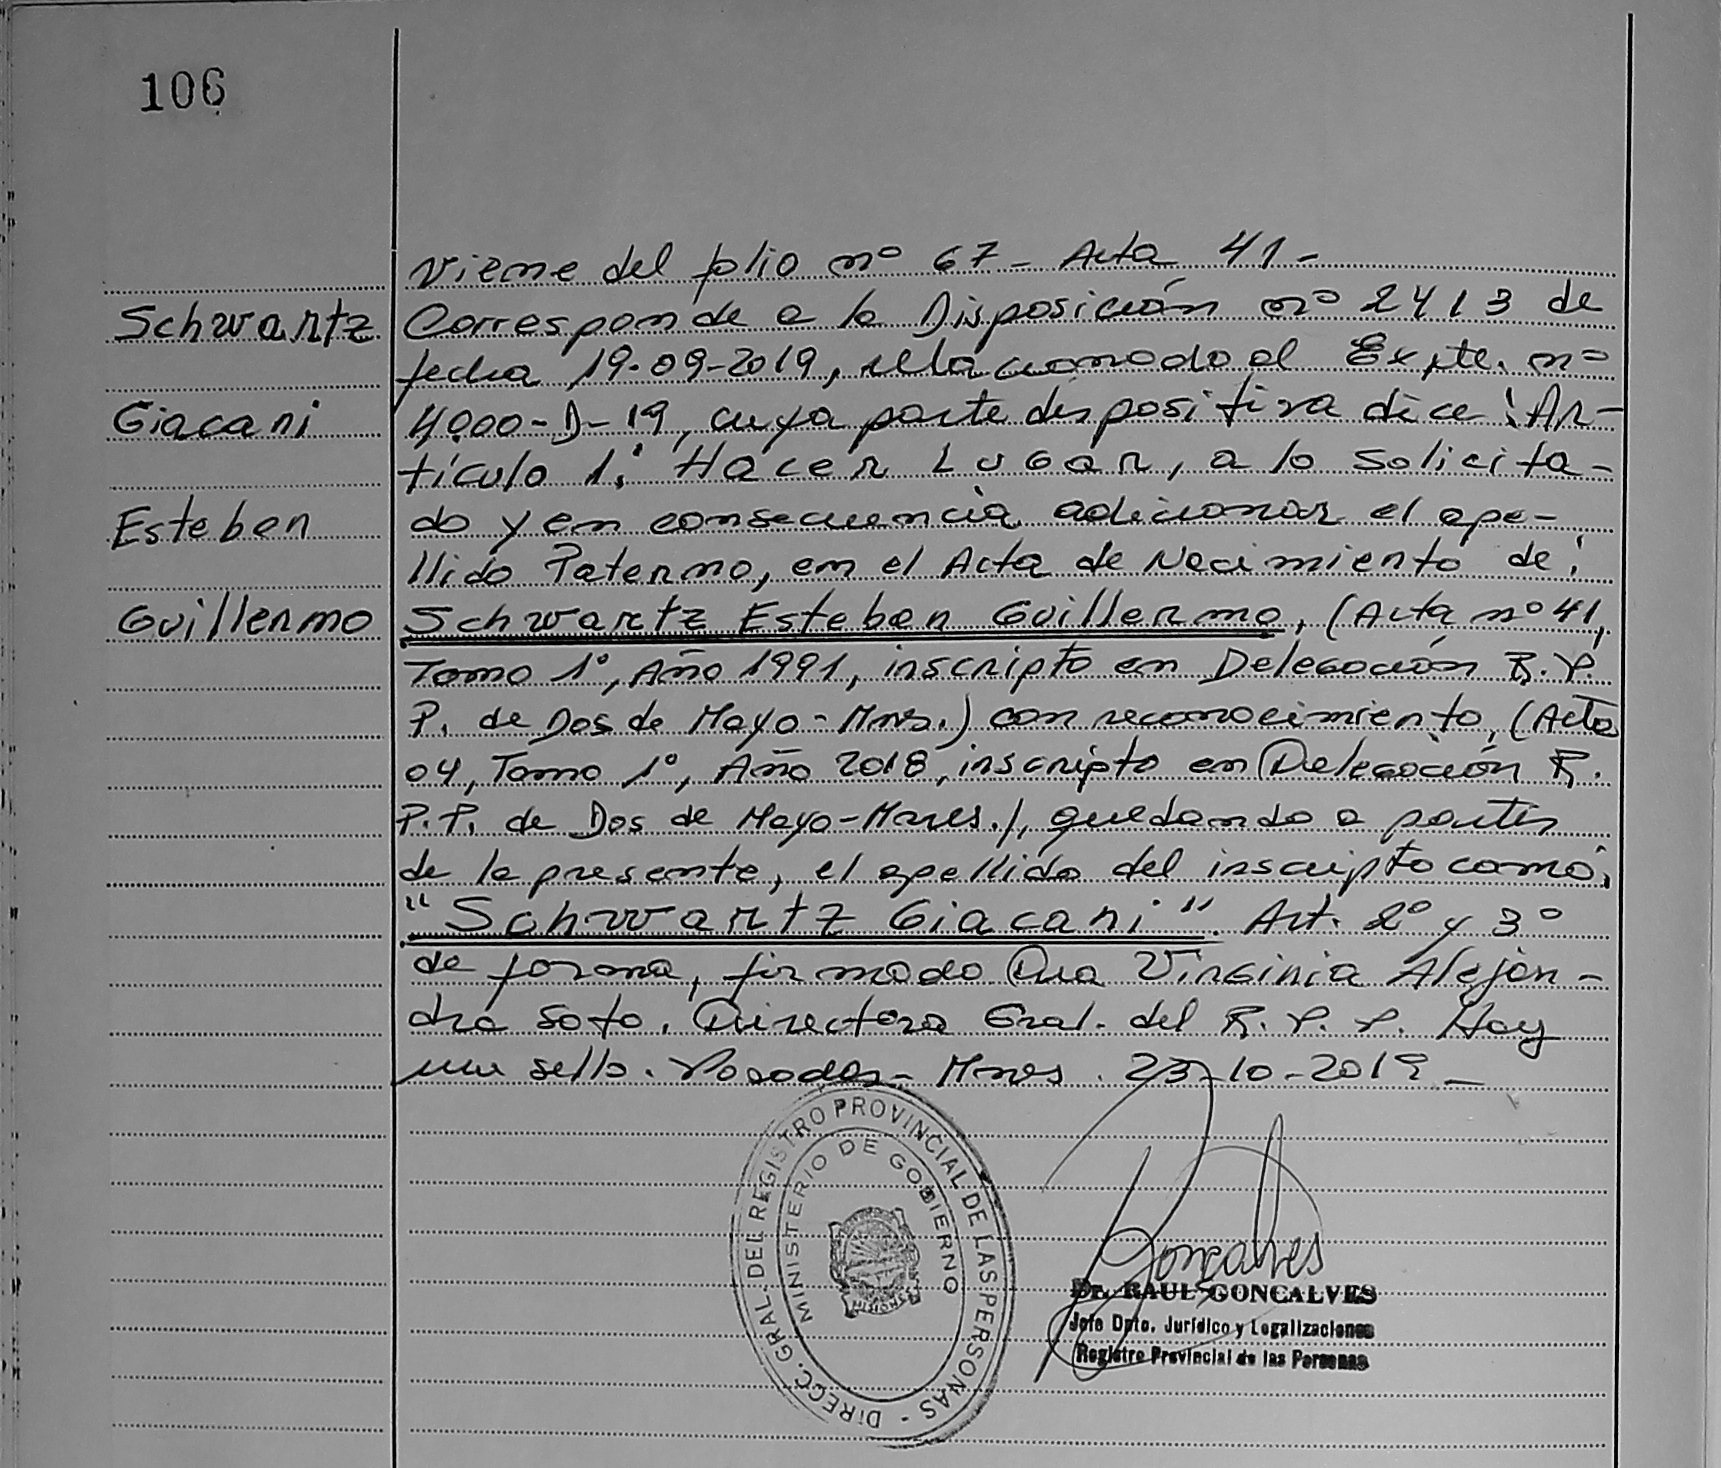 106
Viene del folio nº 67 - Acta 41 -
Schwartz
Giacani
Esteban
Guillermo
Corresponde a la Disposición nº 2413 de
fecha 19-09-2019, relacionado al Expte. nº
4000-D-19, cuya parte dispositiva dice: Ar-
tículo 1: Hacer Lugar, a lo solicita-
do y en consecuencia adicionar el ape-
llido Paterno, en el Acta de Nacimiento de:
Schwartz Esteban Guillermo, (Acta nº 41,
Tomo 1º, Año 1991, inscripto en Delegación R.P.
P. de Dos de Mayo - Mnes.) con reconocimiento, (Acta
04, Tomo 1º, Año 2018, inscripto en Delegación R.
P.P. de Dos de Mayo-Mnes.), quedando a partir
de la presente, el apellido del inscripto como:
"Schwartz Giacani". Art. 2º y 3º
de forma, firmado Dra Virginia Alejan-
dra Soto. Directora Gral. del R.P.P. Hay
un sello. Posadas - Mnes. 23-10-2019 -
DIRECC. GRAL. DEL REGISTRO PROVINCIAL DE LAS PERSONAS -
MINISTERIO DE GOBIERNO
MISIONES
Goncalves
Dr. RAUL GONCALVES
Jefe Dpto. Jurídico y Legalizaciones
Registro Provincial de las Personas